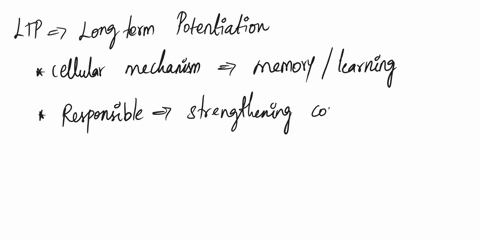 LTP => Long term Potentiation
* cellular mechanism => memory / learning
* Responsible => strengthening co